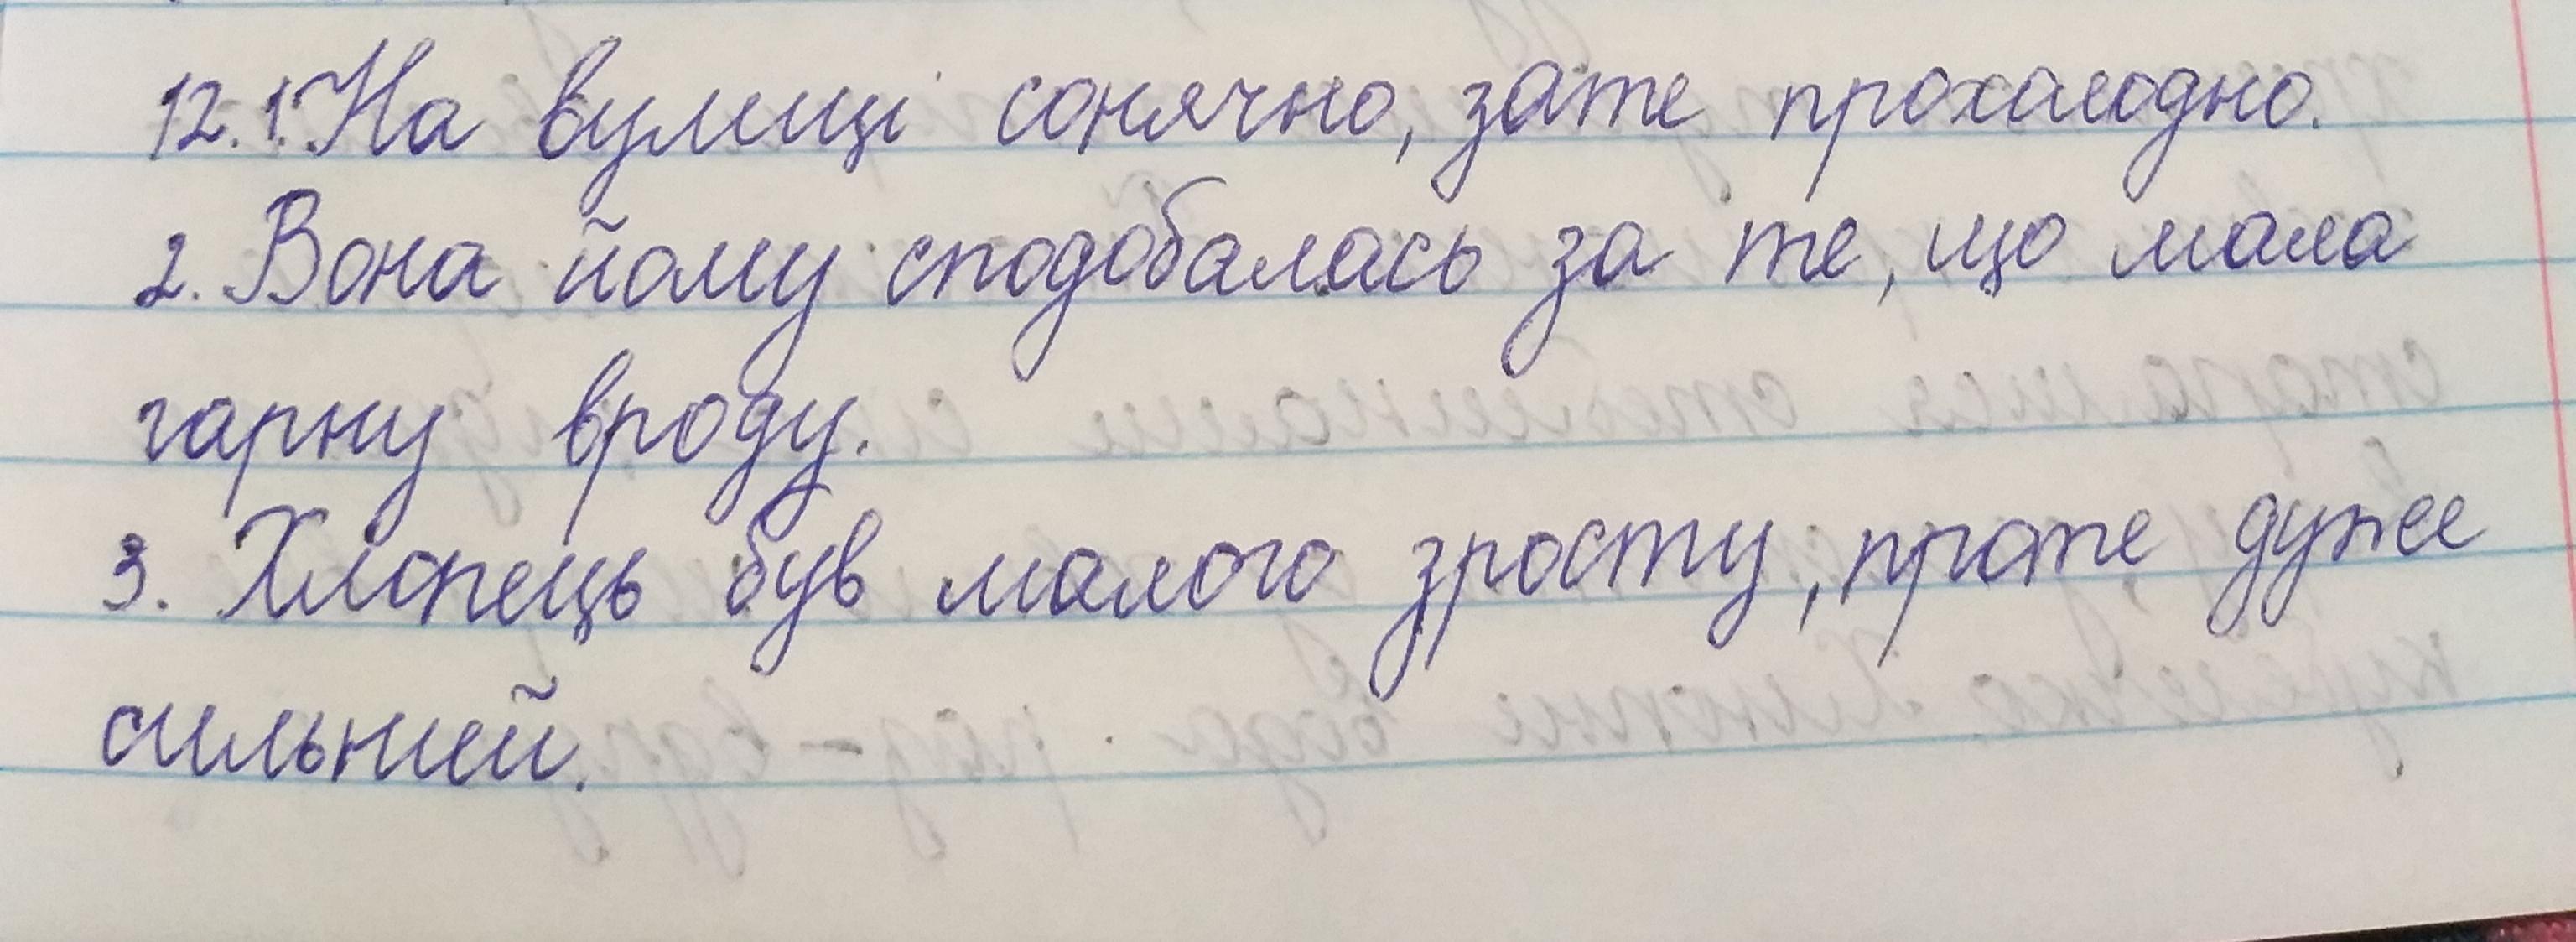 12.1. На вулиці сонячно, зате прохалодно.
2. Вона йому сподобалась за те, що мала
гарну вроду.
3. Хлопець був малого зросту, проте дуже
сильний.